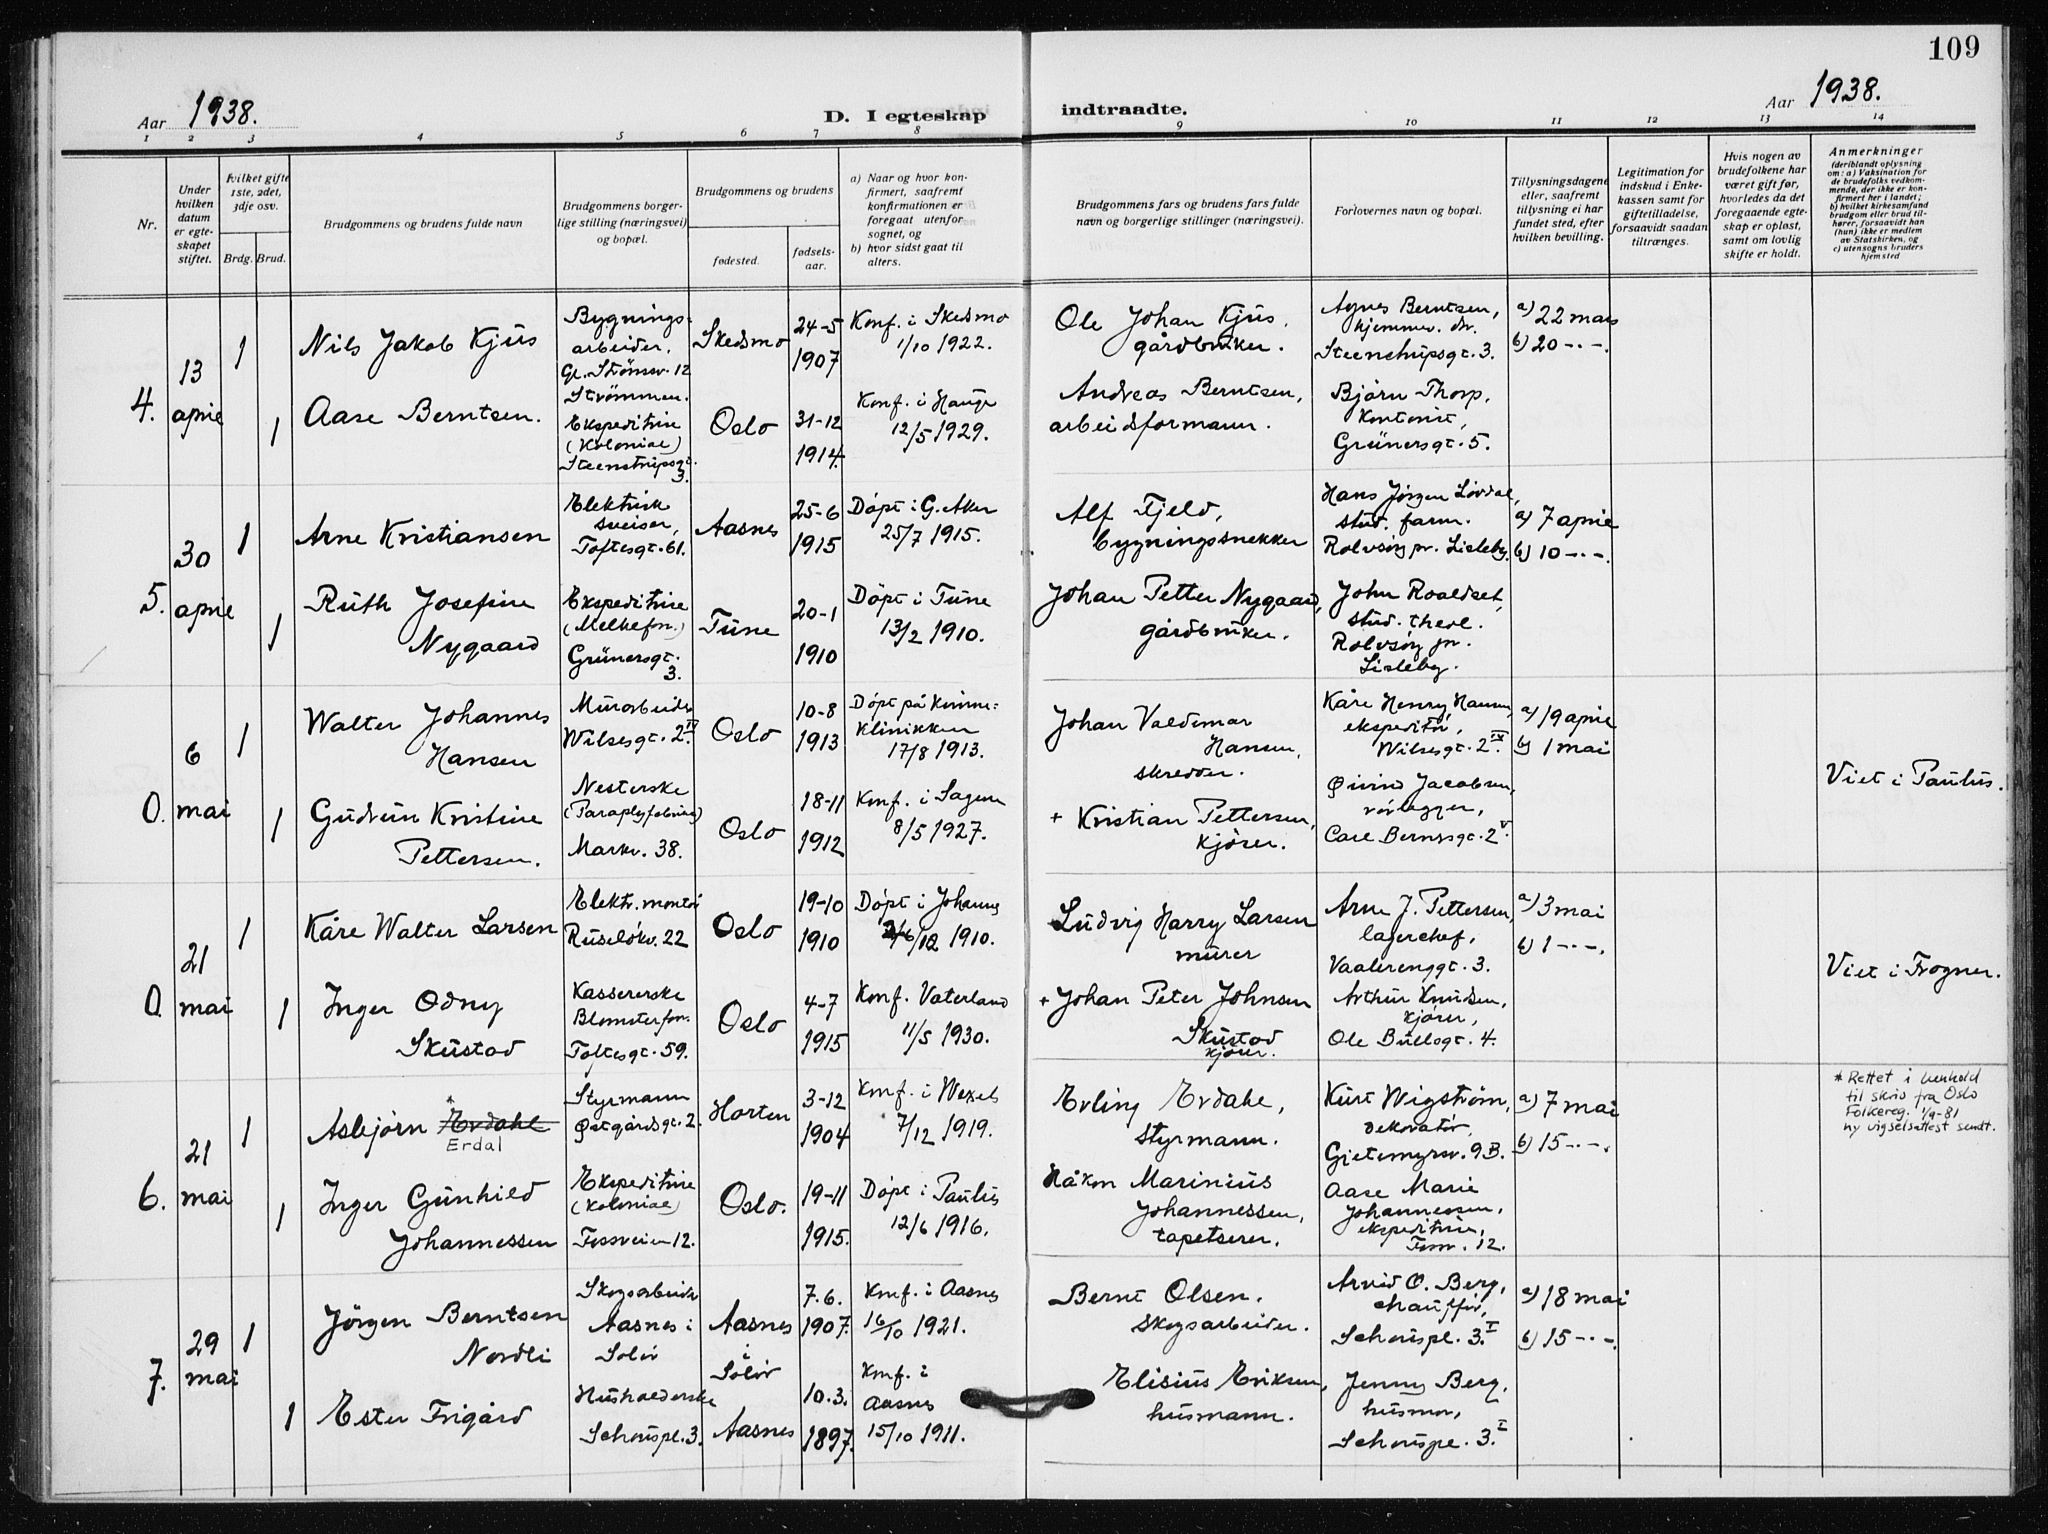 109
Aar 1938.
D. I egteskap indtraadte.
Aar 1938.
1 2 3 4 5 6 7 8 9 10 11 12 13 14
Nr.
Under hvilken datum er egteskapet stiftet.
Hvilket gifte 1ste, 2det, 3dje osv.
Brdg. Brud.
Brudgommens og brudens fulde navn
Brudgommens borgerlige stilling (næringsvei) og bopæl.
Brudgommens og brudens
fødested.
fødselsaar.
a) Naar og hvor konfirmert, saafremt konfirmationen er foregaat utenfor sognet, og
b) hvor sidst gaat til alters.
Brudgommens fars og brudens fars fulde navn og borgerlige stillinger (næringsvei).
Forlovernes navn og bopæl.
Tillysningsdagene eller, saafremt tillysning ei har fundet sted, efter hvilken bevilling.
Legitimation for indskud i Enkekassen samt for giftetilladelse, forsaavidt saadan tiltrænges.
Hvis nogen av brudefolkene har været gift før, hvorledes da det foregaaende egteskap er opløst, samt om lovlig skifte er holdt.
Anmerkninger
(deriblandt oplysning om: a) Vaksination for de brudefolks vedkommende, der ikke er konfirmert her i landet;
b) hvilket kirkesamfund brudgom eller brud tilhører, forsaavidt han (hun) ikke er medlem av Statskirken, og
c) utensogns bruders hjemsted
4.
13 april
1
Nils Jakob Kjus
Bygningsarbeider,
Gl. Strømsv. 12
Strömmen.
Skedsmo
24-5
1907
Konf. i Skedsmo
1/10 1922.
Ole Johan Kjus,
gårdbruker.
Agnes Berntsen,
hjemmev. dr.
Steenstrupsgt. 3.
a) 22 mars
b) 20 -·-.
1
Aase Berntsen.
Ekspeditrise
(Kolonial)
Steenstrupsgt.
3.
Oslo
31-12
1914.
Konf. i Hauge
12/5 1929.
Andreas Berntsen,
arbeidsformann.
Bjørn Thorp,
Kontorist,
Grünersgt. 5.
5.
30 april
1
Arne Kristiansen
Elektrisk
sveiser,
Toftesgt. 61.
Aasnes
25-6
1915
Döpt i G. Aker
25/7 1915.
Alf Fjeld,
bygningssnekker
Hans Jørgen Lövdal,
stud. farm.
Rolvsøy pr. Lisleby.
a) 7 april
b) 10 -·-.
1
Ruth Josefine
Nygaard
Ekspeditrise
(Melkefor.)
Grünersgt.
3.
Tune
20-1
1910
Döpt i Tune
13/2 1910.
Johan Petter Nygaard,
gårdbruker.
John Roaldset,
stud. theol.
Rolvsöy pr.
Lisleby.
0.
6 mai
1
Walter Johannes
Hansen
Murarbeider
Wilsesgt. 2 IV.
Oslo
10-8
1913
Döpt på Kvinne=
Klinikken
17/8 1913.
Johan Valdemar
Hansen,
skredder.
Kåre Henry Hansen,
ekspeditør,
Wilsesgt. 2 IV.
a) 19 april
b) 1 mai
Viet i Paulus.
1
Gudrun Kristine
Pettersen.
Nesterske
(Paraplyfabrik)
Markv. 38.
Oslo
18-11
1912
Konf. i Sagene
8/5 1927.
+ Kristian Pettersen,
kjörer.
Øivind Jacobsen,
rørlegger,
Carl Bernersgt. 2 V.
0.
21 mai
1
Kåre Walter Larsen
Elektr. montör
Ruselökv. 22
Oslo
19-10
1910
Döpt i Johannes
26/12 1910.
Ludvig Harry Larsen
murer
Arne J. Pettersen,
lagerchef,
Vaalerenggt. 3.
a) 3 mai
b) 1 -·-.
Viet i Frogner.
1
Inger Odny
Skustad
Kassererske
Blomsterforr.
Toftesgt. 59.
Oslo
4-7
1915
Konf. Vaterland
11/5 1930.
+ Johan Peter Johnsen
Skustad
kjører.
Arthur Knudsen,
kjører,
Ole Bullsgt. 4.
6.
21 mai
1
Asbjørn * Erdahl
Erdal
Styrmann
Østgårdsgt. 2.
Horten
3-12
1904
Konf. i Wexels
7/12 1919.
Erling Erdahl,
Styrmann.
Kurt Wigström,
dekoratør,
Gjetemyrsv. 9B.
a) 7 mai
b) 15 -·-.
* Rettet i henhold
til skriv fra Oslo
Folkereg. 1/9-81
ny vigselsattest sendt.
1
Inger Gunhild
Johannessen
Ekspeditrise
(Kolonial)
Fossveien 12.
Oslo.
19-11
1915.
Döpt i Paulus
12/6 1916.
Håkon Marinius
Johannessen,
tapetserer.
Aase Marie
Johannessen,
ekspeditrise,
Fossv. 12.
7.
29 mai
1
Jörgen Berntsen
Nordli
Skogsarbeider
Aasnes i
Solör
Aasnes
i
Solör
7.6.
1907.
Konf. i Aasnes
16/10 1921.
Bernt Olsen,
skogsarbeider.
Arvid O. Berg,
chauffør,
Schouspl. 3. I
a) 18 mai
b) 15 -·-.
1
Ester Frigård
Husholderske
Schouspl. 3.
Aasnes
10.3.
1897.
Konf. i
Aasnes
15/10 1911.
Elisius Eriksen,
husmann.
Jenny Berg,
husmor,
Schouspl. 3. I